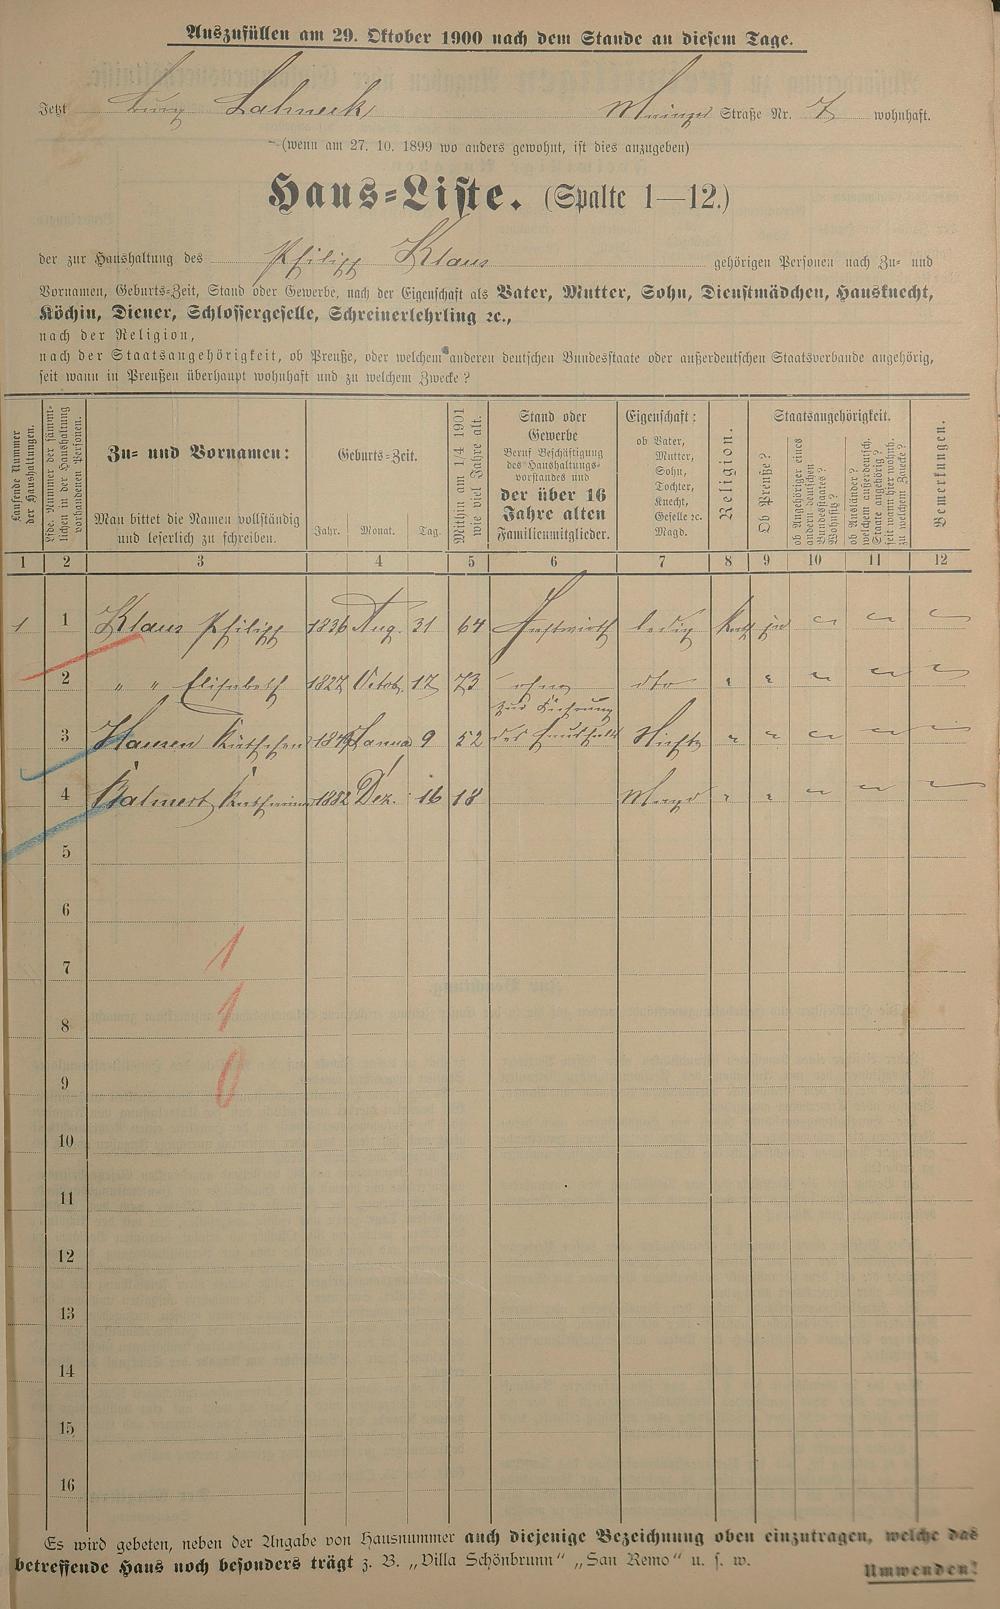 Auszufüllen am 29. Oktober 1900 nach dem Stande an diesem Tage.
Jetzt Burg Lahneck Mainzer Straße Nr. 7 wohnhaft.
(wenn am 27. 10. 1899 wo anders gewohnt, ist dies anzugeben)
Haus-Liste. (Spalte 1—12.)
der zur Haushaltung des Philipp Klaus gehörigen Personen nach Zu- und
Vornamen, Geburts-Zeit, Stand oder Gewerbe, nach der Eigenschaft als Vater, Mutter, Sohn, Dienstmädchen, Hausknecht,
Köchin, Diener, Schlossergeselle, Schreinerlehrling ꝛc.,
nach der Religion,
nach der Staatsangehörigkeit, ob Preuße, oder welchem anderen deutschen Bundesstaate oder außerdeutschen Staatsverbande angehörig,
seit wann in Preußen überhaupt wohnhaft und zu welchem Zwecke?
Laufende Nummer
der Haushaltungen.
Lfde. Nummer der sämmt-
lichen in der Haushaltung
vorhandenen Personen.
Zu- und Vornamen:
Man bittet die Namen vollständig
und leserlich zu schreiben.
Geburts-Zeit.
Jahr. Monat. Tag.
Mithin am 1/4 1901
wie viel Jahre alt.
Stand oder
Gewerbe
Beruf Beschäftigung
des Haushaltungs-
vorstandes und
der über 16
Jahre alten
Familienmitglieder.
Eigenschaft:
ob Vater,
Mutter,
Sohn,
Tochter,
Knecht,
Geselle ꝛc.
Magd.
Religion.
Staatsangehörigkeit.
Ob Preuße?
ob Angehöriger eines
andern deutschen
Bundesstaates?
Wohnsitz?
ob Ausländer?
welchem außerdeutsch.
Staate angehörig?
seit wann hier wohnh.
zu welchem Zwecke?
Bemerkungen.
1 2 3 4 5 6 7 8 9 10 11 12
1 1 Klaus Philipp 1836 Aug. 31 64 Gastwirth ledig Kath ja
2 " " Elisabeth 1827 Octob. 17 73 ohne dto " "
3 Hansen Käthchen Janua 9 52 zur Führung des Haushalts Nichte " "
4 Balmert Katharina 1882 Dez. 16 18 Magd " "
5
6
7
8
9
10
11
12
13
14
15
16
1
1
0
Es wird gebeten, neben der Angabe von Hausnummer auch diejenige Bezeichnung oben einzutragen, welche das
betreffende Haus noch besonders trägt z. B. „Villa Schönbrunn" „San Remo" u. s. w.
Umwenden!